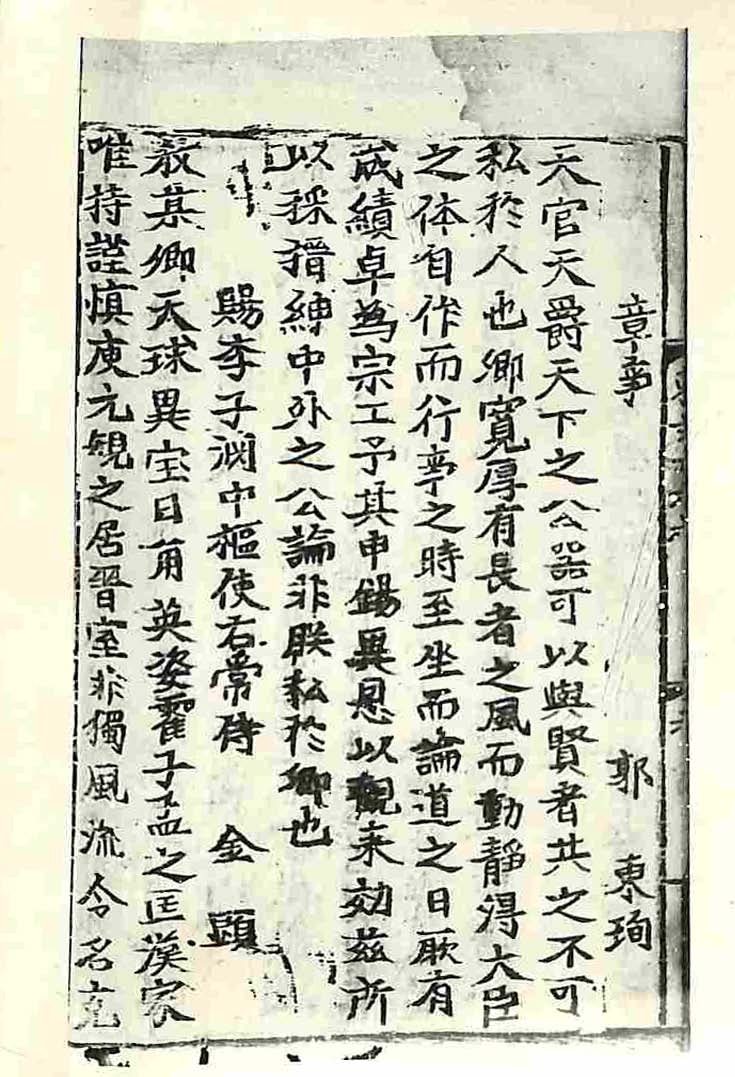 章事　郭　東珣
天官天爵天下之公器可以與賢者共之不可
私於人也卿寬厚有長者之風而動靜得大臣
之体自作而行亭之時至坐而論道之日厥有
成績卓為宗工予其申錫異恩以觀来効茲所
以採搢紳中外之公論非朕私於卿也
賜李子淵中樞使右常侍　金顯
教某卿天球異宝日角英姿霍子孟之匡漢家
唯持謹愼庾元規之居晉室非獨風流令名克